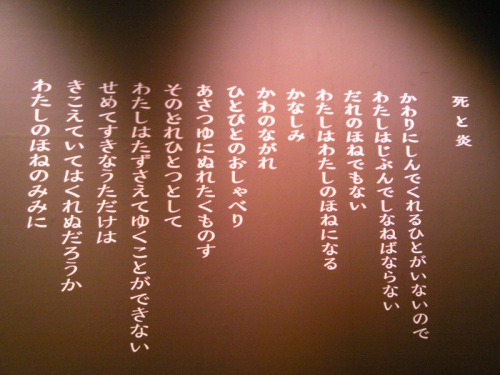 死と炎
かわりにしんでくれるひとがいないので
わたしはじぶんでしなねばならない
だれのほねでもない
わたしはわたしのほねになる
かなしみ
かわのながれ
ひとびとのおしゃべり
あさつゆにぬれたくものす
そのどれひとつとして
わたしはたずさえてゆくことができない
せめてすきなうただけは
きこえていてはくれぬだろうか
わたしのほねのみみに